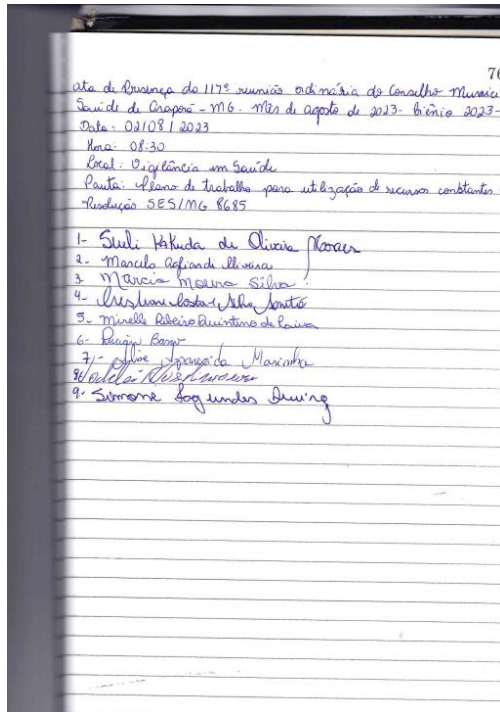 76
ata de Presença da 117ª reunião ordinária do Conselho Municic
Saúde de Araporã - MG. Mês de agosto de 2023 - biênio 2023-
Data: 02/08/2023
Hora: 08:30
Local: Vigilância em Saúde
Pauta: Plano de trabalho para utilização de recursos constantes
Resolução SES/MG 8685
1- Sueli Kakuda de Oliveira Moraes
2- Marcelo Oliveira
3. Marcia Moura Silva
4- Costa Silva
5- Mirelle Ribeiro Quintino de Paiva
6-
7- Aline Aparecida Marinho
8
9. Simone Fagundes